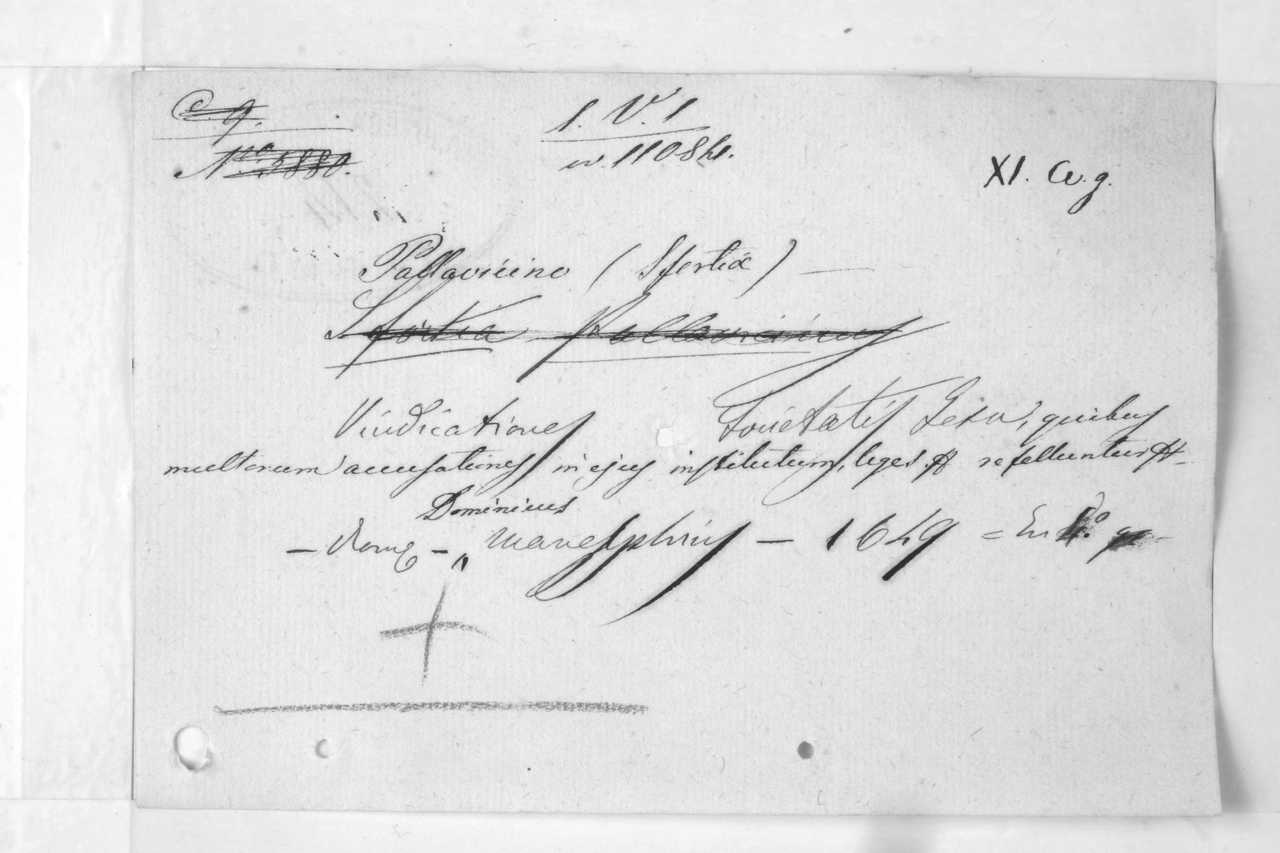 C 9.
N.ro 5880.
1. V. 1
n. 11084.
XI. C.v.g.
Pallavicino (Sfortiæ) —
Sfortia Pallavicinus
Vindicationes Societatis Jesu, quibus
multorum accusationes in ejus institutum, leges, refelluntur
Dominicus
— Romę — Manelphius — 1649 = In 4.º